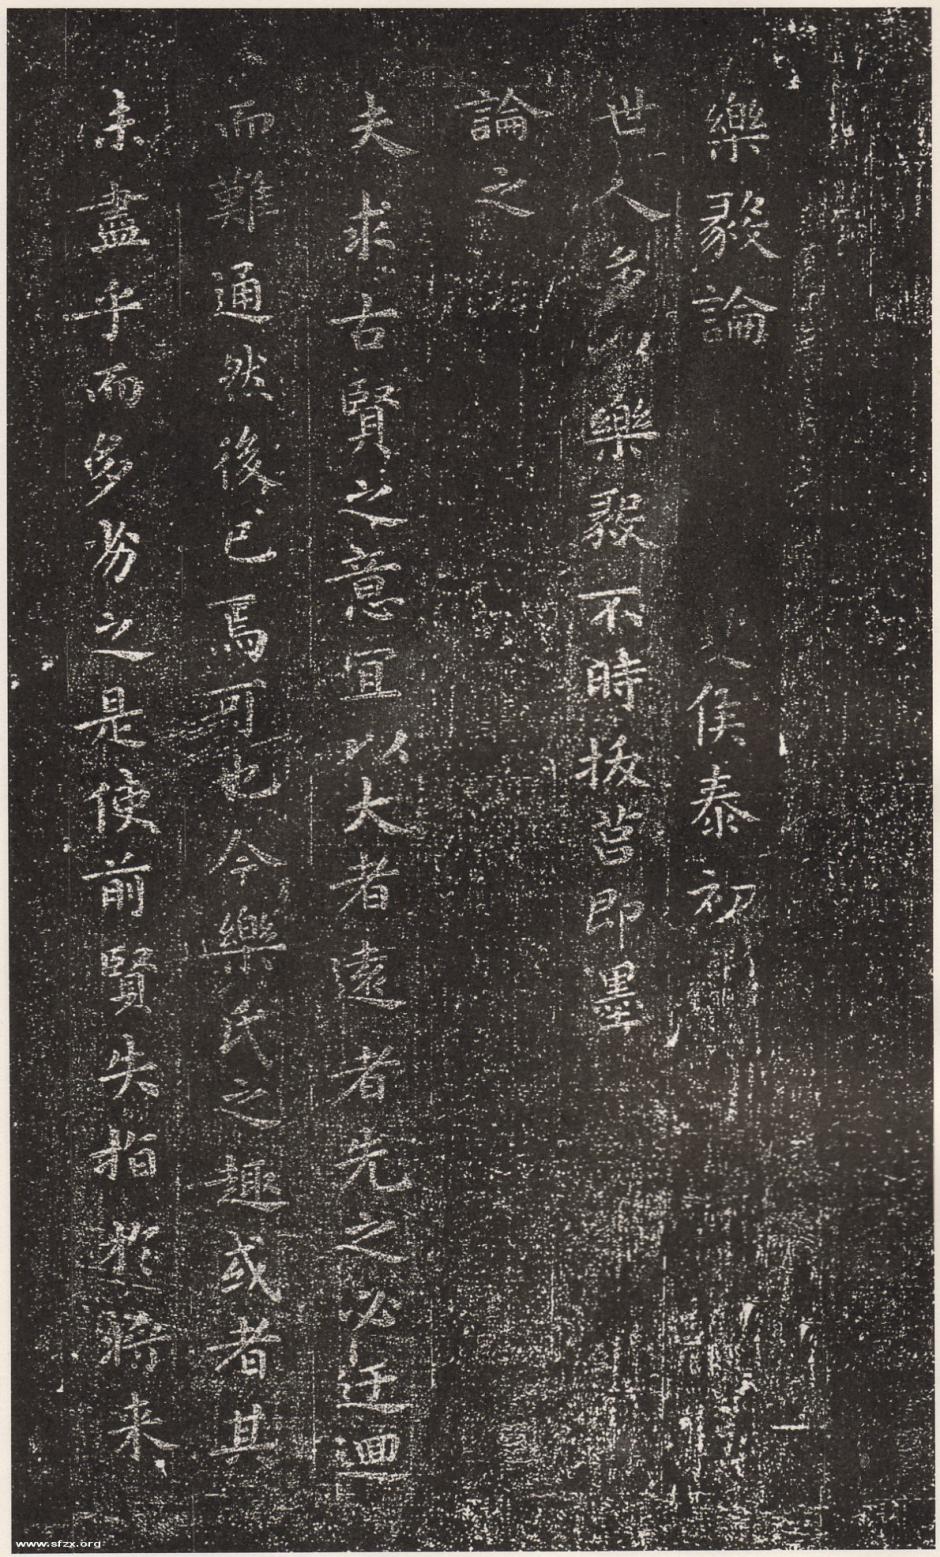 樂毅論 侯泰初
世人多以樂毅不時拔莒即墨
論之
夫求古賢之意宜以大者遠者先之必迂迴
而難通然後已焉可也今樂氏之趣或者其
未盡乎而多劣之是使前賢失指於將來
www.sfzx.org